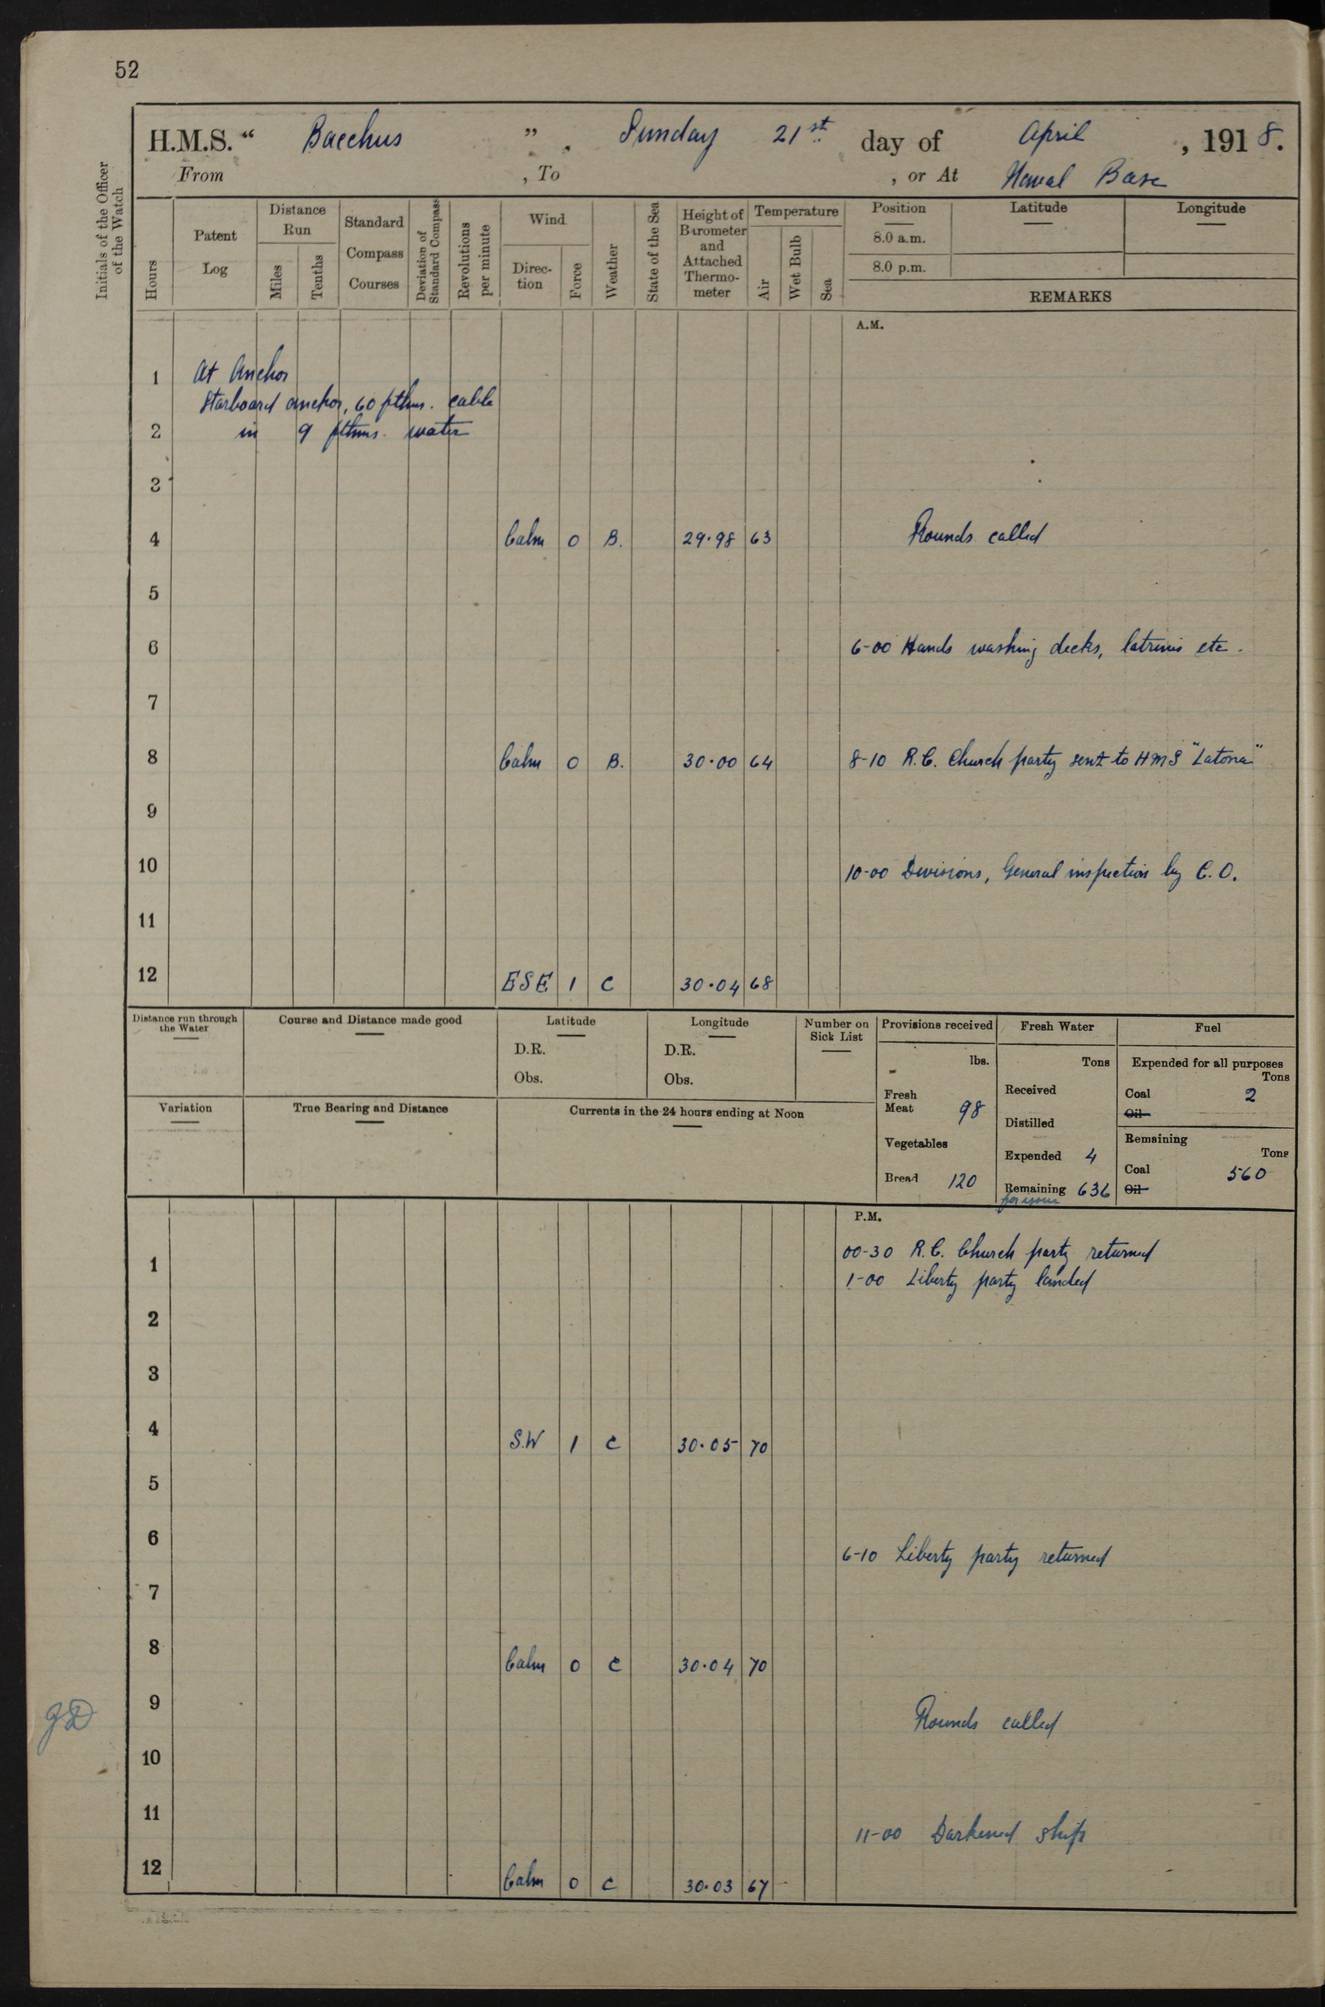 52
H.M.S. “ Bacchus ” . Sunday 21st day of April , 1918.
From , To , or At Naval Base
Initials of the Officer of the Watch
Hours
Patent Log
Distance Run
Miles
Tenths
Standard Compass Courses
Deviation of Standard Compass
Revolutions per minute
Wind
Direction
Force
Weather
State of the Sea
Height of Barometer and Attached Thermometer
Temperature
Air
Wet Bulb
Sea
Position Latitude Longitude
8.0 a.m.
8.0 p.m.
REMARKS
A.M.
1 At Anchor
Starboard anchor, 60 fthms. cable
2 in 9 fthms. water
3
4 Calm 0 B. 29.98 63 Rounds called
5
6 6-00 Hands washing decks, latrines etc.
7
8 Calm 0 B. 30.00 64 8-10 R.C. Church party sent to HMS "Latona"
9
10 10-00 Divisions, General inspection by C.O.
11
12 ESE 1 C 30.04 68
Distance run through the Water
Course and Distance made good
Latitude
D.R.
Obs.
Longitude
D.R.
Obs.
Number on Sick List
Provisions received
lbs.
Fresh Meat 98
Vegetables
Bread 120
Fresh Water
Tons
Received
Distilled
Expended 4
Remaining 636
Fuel
Expended for all purposes
Tons
Coal 2
Oil
Remaining
Tons
Coal 560
Oil
Variation
True Bearing and Distance
Currents in the 24 hours ending at Noon
P.M.
00-30 R.C. Church party returned
1 1-00 Liberty party landed
2
3
4 S.W 1 C 30.05 70
5
6 6-10 Liberty party returned
7
8 Calm 0 C 30.04 70
9 Rounds called
10
11 11-00 Darkened ship
12 Calm 0 C 30.03 67